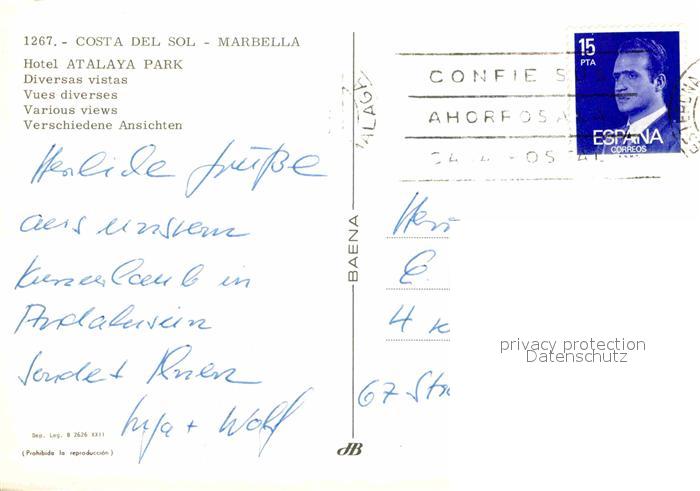 1267. - COSTA DEL SOL - MARBELLA
Hotel ATALAYA PARK
Diversas vistas
Vues diverses
Various views
Verschiedene Ansichten
Herzliche Grüße
aus unserem
Kurzurlaub in
Andalusien
sendet Ihnen
Inga + Wolf
Dep. Leg. B 2626 XXII
(Prohibida la reproducción)
BAENA
JB
15
PTA
ESPAÑA
CORREOS
CONFIE SUS
AHORROS A LA
MALAGA
4
67 Str
privacy protection
Datenschutz